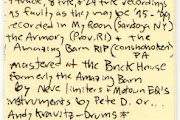 track, 8 trk, & 24 trk recordings
as faulty as they may be '95 -
recorded in My Room (Sardoga NY)
the Armory (Prov. RI) + the
Amazing Barn RIP (conshohoken) PA
mastered at the Brick House
formerly the Amazing Barn
by Neve limiters + Motown EQ's
instruments by Pete D. or...
Andy Kravitz - Drums *